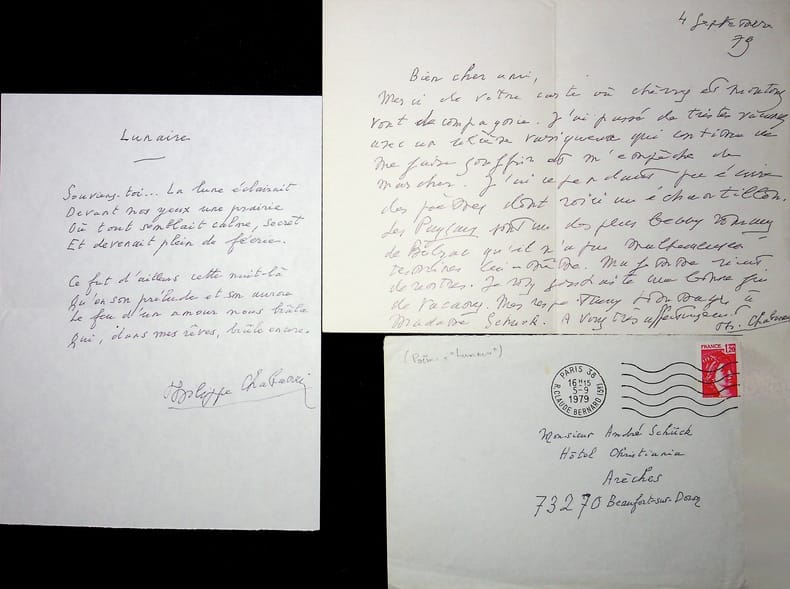 Lunaire
Souviens-toi... La lune éclairait
Devant nos yeux une prairie
Où tout semblait calme, secret
Et devenait plein de féerie.
Ce fut d'ailleurs cette nuit-là
Qu'en son prélude et son aurore
Le feu d'un amour nous brûla
Qui, dans mes rêves, brûle encore.
Philippe Chabaneix
4 Septembre
79
Bien cher ami,
Merci de votre carte où chèvres et moutons
vont de compagnie. J'ai passé de tristes vacances
avec un ulcère variqueux qui continue de
me faire souffrir et m'empêche de
marcher. J'ai cependant pu écrire
des poèmes dont voici un échantillon.
Les Paysans sont un des plus beaux romans
de Balzac qu'il n'a pas malheureusement
terminés lui-même. Ma femme vient
de rentrer. Je vous souhaite une bonne fin
de vacances. Mes respectueux hommages à
Madame Schück. A vous très affectueusement
Ph. Chabaneix
(Poème : "Lunaire")
PARIS 38
16H15
5-9
1979
R. CLAUDE BERNARD (5E)
FRANCE 1,20
Monsieur André Schück
Hôtel Christiania
Arèches
73270 Beaufort-sur-Doron